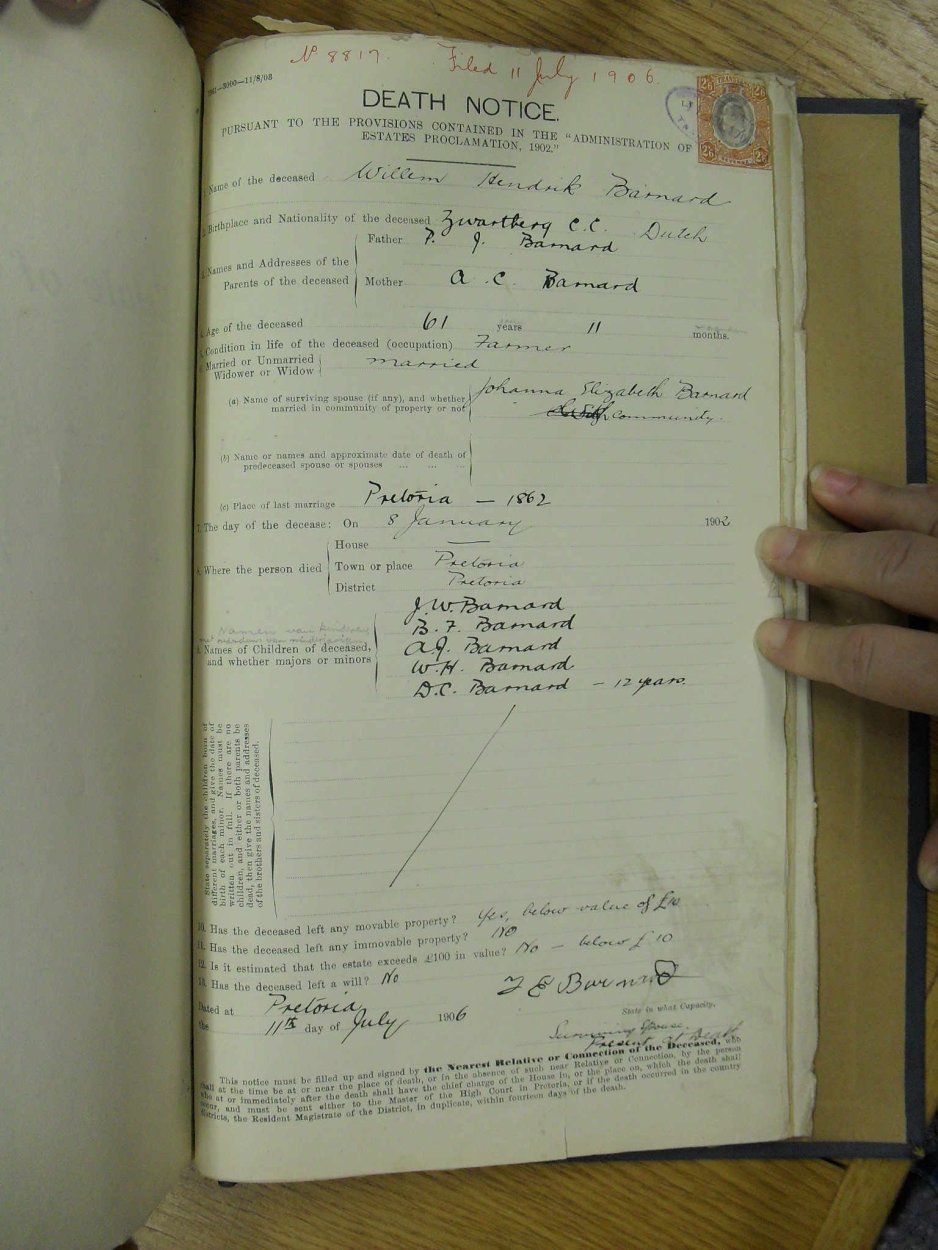 Nº 8817. Filed 11 July 1906.
3000—11/8/03
DEATH NOTICE.
PURSUANT TO THE PROVISIONS CONTAINED IN THE "ADMINISTRATION OF
ESTATES PROCLAMATION, 1902."
TRANSVAAL
2/6 2/6
2/6 2/6
REVENUE
1. Name of the deceased Willem Hendrik Barnard
2. Birthplace and Nationality of the deceased Zwartberg C.C. Dutch
3. Names and Addresses of the Parents of the deceased
Father P. J. Barnard
Mother A. C. Barnard
4. Age of the deceased 61 years 11 months.
5. Condition in life of the deceased (occupation) Farmer
6. Married or Unmarried
Widower or Widow married
(a) Name of surviving spouse (if any), and whether
married in community of property or not
Johanna Elizabeth Barnard
community.
(b) Name or names and approximate date of death of
predeceased spouse or spouses ... ... ...
(c) Place of last marriage Pretoria — 1862
7. The day of the decease: On 8 January 1902
8. Where the person died
House —
Town or place Pretoria
District Pretoria
Namen van kinderen
9. Names of Children of deceased,
and whether majors or minors
J. W. Barnard
B. F. Barnard
A. J. Barnard
W. H. Barnard
D. C. Barnard — 12 years.
State separately the children born of
different marriages, and give the date of
birth of each minor. Names must be
written out in full. If there are no
children, and either or both parents be
dead, then give the names and addresses
of the brothers and sisters of deceased.
10. Has the deceased left any movable property? Yes, below value of £10
11. Has the deceased left any immovable property? No
12. Is it estimated that the estate exceeds £100 in value? No — below £10
13. Has the deceased left a will? No
J E Barnard
Dated at Pretoria
State in what Capacity.
the 11th day of July 1906
Surviving Spouse.
Present at Death
This notice must be filled up and signed by the Nearest Relative or Connection of the Deceased, who
shall at the time be at or near the place of death, or in the absence of such near Relative or Connection, by the person
who at or immediately after the death shall have the chief charge of the House in, or the place on, which the death shall
occur, and must be sent either to the Master of the High Court in Pretoria, or if the death occurred in the country
districts, the Resident Magistrate of the District, in duplicate, within fourteen days of the death.